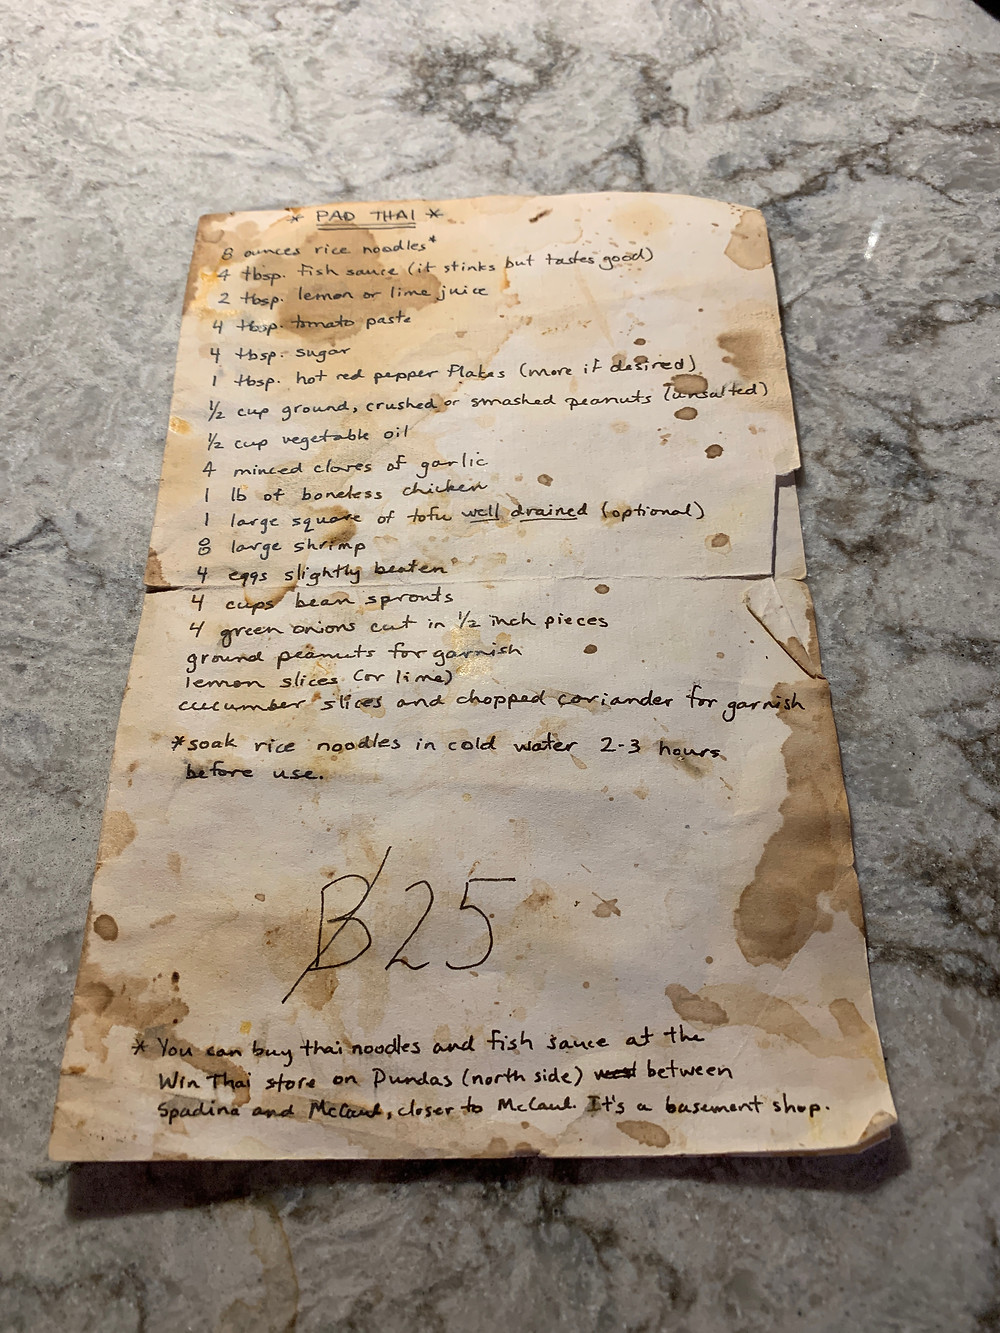 * PAD THAI *
8 ounces rice noodles*
4 tbsp. fish sauce (it stinks but tastes good)
2 tbsp. lemon or lime juice
4 tbsp. tomato paste
4 tbsp. sugar
1 tbsp. hot red pepper flakes (more if desired)
1/2 cup ground, crushed or smashed peanuts (unsalted)
1/2 cup vegetable oil
4 minced cloves of garlic
1 lb of boneless chicken
1 large square of tofu well drained (optional)
8 large shrimp
4 eggs slightly beaten
4 cups bean sprouts
4 green onions cut in 1/2 inch pieces
ground peanuts for garnish
lemon slices (or lime)
cucumber slices and chopped coriander for garnish
*soak rice noodles in cold water 2-3 hours
before use.
฿25
* You can buy thai noodles and fish sauce at the
Win Thai store on Dundas (north side) west between
Spadina and McCaul, closer to McCaul. It's a basement shop.